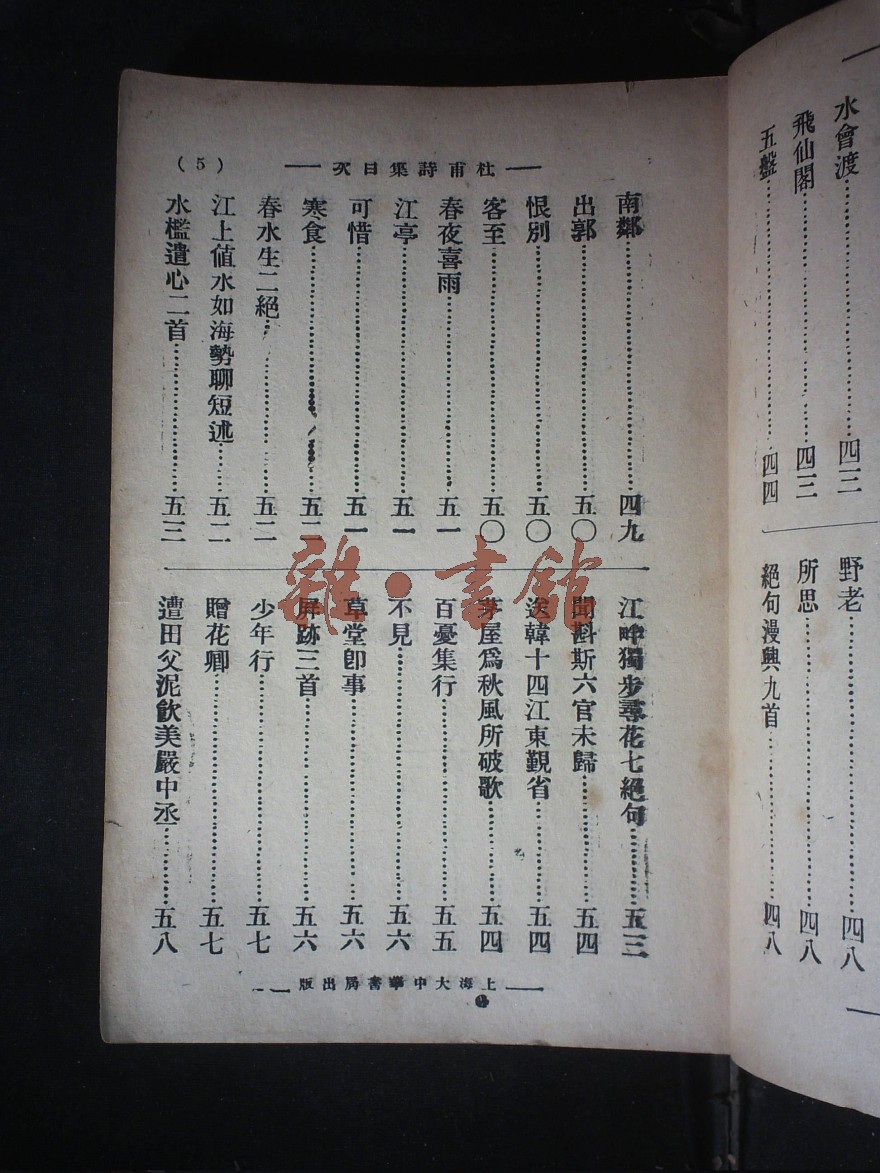 水會渡……四三
飛仙閣……四三
五盤……四四
野老……四八
所思……四八
絕句漫興九首……四八
杜甫詩集目次
(5)
南鄰……四九
出郭……五〇
恨別……五〇
客至……五〇
春夜喜雨……五一
江亭……五一
可惜……五一
寒食……五二
春水生二絕……五二
江上值水如海勢聊短述……五二
水檻遣心二首……五三
江畔獨步尋花七絕句……五三
聞斛斯六官未歸……五四
送韓十四江東覲省……五四
茅屋爲秋風所破歌……五四
百憂集行……五五
不見……五六
草堂卽事……五六
屏跡三首……五六
少年行……五七
贈花卿……五七
遭田父泥飲美嚴中丞……五八
上海大中華書局出版
雜·書館